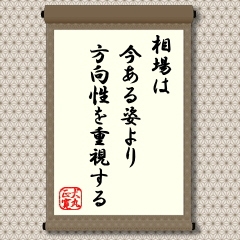 相場は
今ある姿より
方向性を重視する